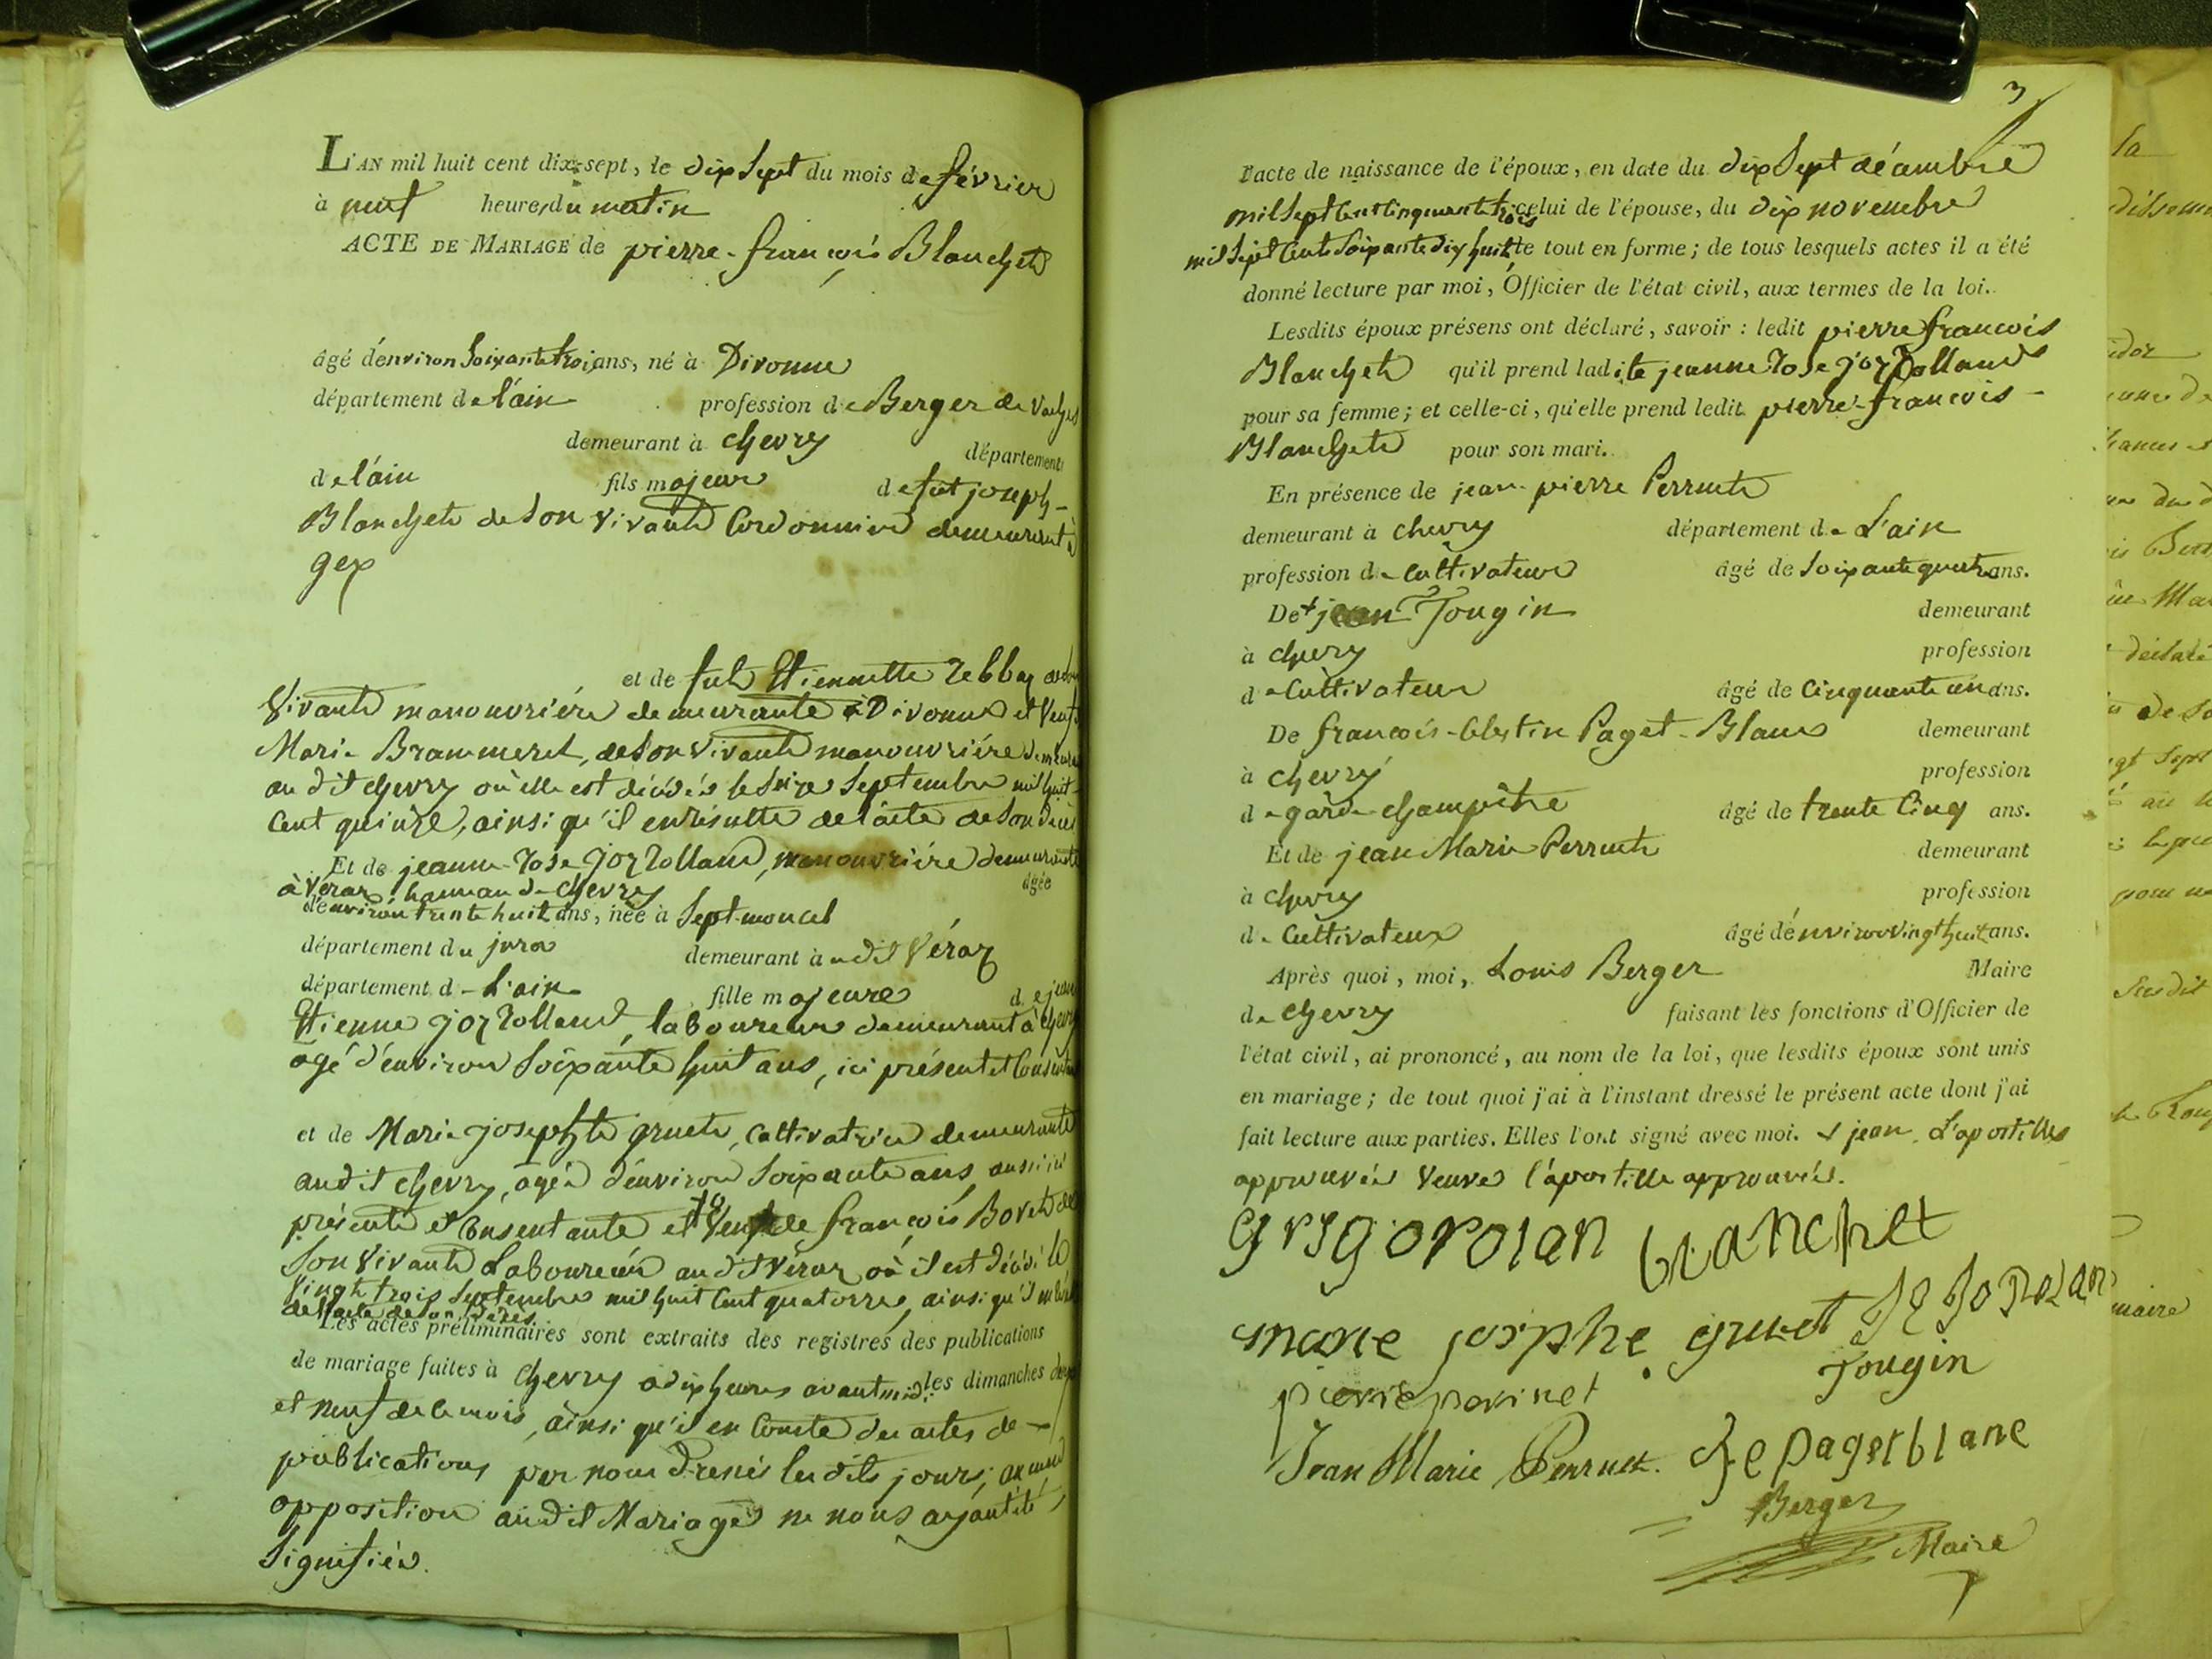 L'AN mil huit cent dix-sept, le dix Sept du mois de février
à neuf heures du matin
ACTE DE MARIAGE de pierre-françois Blanchet
âgé d'environ Soixante trois ans, né à Divonne
département de l'ain profession de Berger de Vaches
demeurant à chevry département
de l'ain fils majeur de fut joseph
Blanchet de Son vivant Cordonnier demeurant à
gex
et de fut Etiennette
Vivante manouvriére demeurante à Divonne et Veuf de
Marie Brammeret, de Son Vivante manouvriére demeurante
au dit chevry où elle est décédée le Septembre mil huit
Cent quinze, ainsi qu'il en résulte de l'acte de Son décès
Et de jeanne-rose jozrolland, manouvriére demeurante
à Véraz hameau de chevry âgée
d'environ trente huit ans, née à Sept-moncel
département du jura demeurant à udit Véraz
département d L'ain fille majeure de jean
Etienne jozrolland, laboureur demeurant à chevry
agé d'environ Soixante huit ans, ici présent et Consentant
et de Marie josephte gruet, Cultivatrice demeurante
audit chevry, agée d'environ Soixante ans, aussi ici
présente et Consentante et Veuve de françois Bovet de
Son Vivant Laboureur audit véraz où il est décédé le
Vingt trois Septembre mil huit Cent quatorze, ainsi qu'il
de l'acte de Son Décès
Les actes préliminaires sont extraits des registres des publications
de mariage faites à Chevry à dix heures avant midi les dimanches deux
et neuf de ce mois, ainsi qu'il en Conste des actes de
publications par nous dressés les dits jours; aucune
opposition audit Mariage ne nous ayant été
Signifiée.
3
L'acte de naissance de l'époux, en date du dix Sept décembre
mil Sept Cent Cinquante trois celui de l'épouse, du dix novembre
mil Sept Cent Soixante dix huit le tout en forme; de tous lesquels actes il a été
donné lecture par moi, Officier de l'état civil, aux termes de la loi.
Lesdits époux présens ont déclaré, savoir : ledit pierre francois
Blanchet qu'il prend ladite jeanne rose jozrolland
pour sa femme; et celle-ci, qu'elle prend ledit pierre-francois
Blanchet pour son mari.
En présence de jean-pierre Perruet
demeurant à chevry département de L'ain
profession de Cultivateur âgé de Soixante quatre ans.
De + jean Tougin demeurant
à chevry profession
de Cultivateur âgé de Cinquante un ans.
De françois-Celestin Paget-Blanc demeurant
à chevry profession
de garde champêtre âgé de trente Cinq ans.
Et de jean Marie Perruet demeurant
à chevry profession
de Cultivateur âgé d'environ Vingt huit ans.
Après quoi, moi, Louis Berger Maire
de chevry faisant les fonctions d'Officier de
l'état civil, ai prononcé, au nom de la loi, que lesdits époux sont unis
en mariage; de tout quoi j'ai à l'instant dressé le présent acte dont j'ai
fait lecture aux parties. Elles l'ont signé avec moi. + jean. L'apostille
approuvée Veuve l'apostille approuvée.
blanchet
marie josphe gruet
Tougin
pierre
Jean Marie Perruet. paget blanc
Berger
Maire